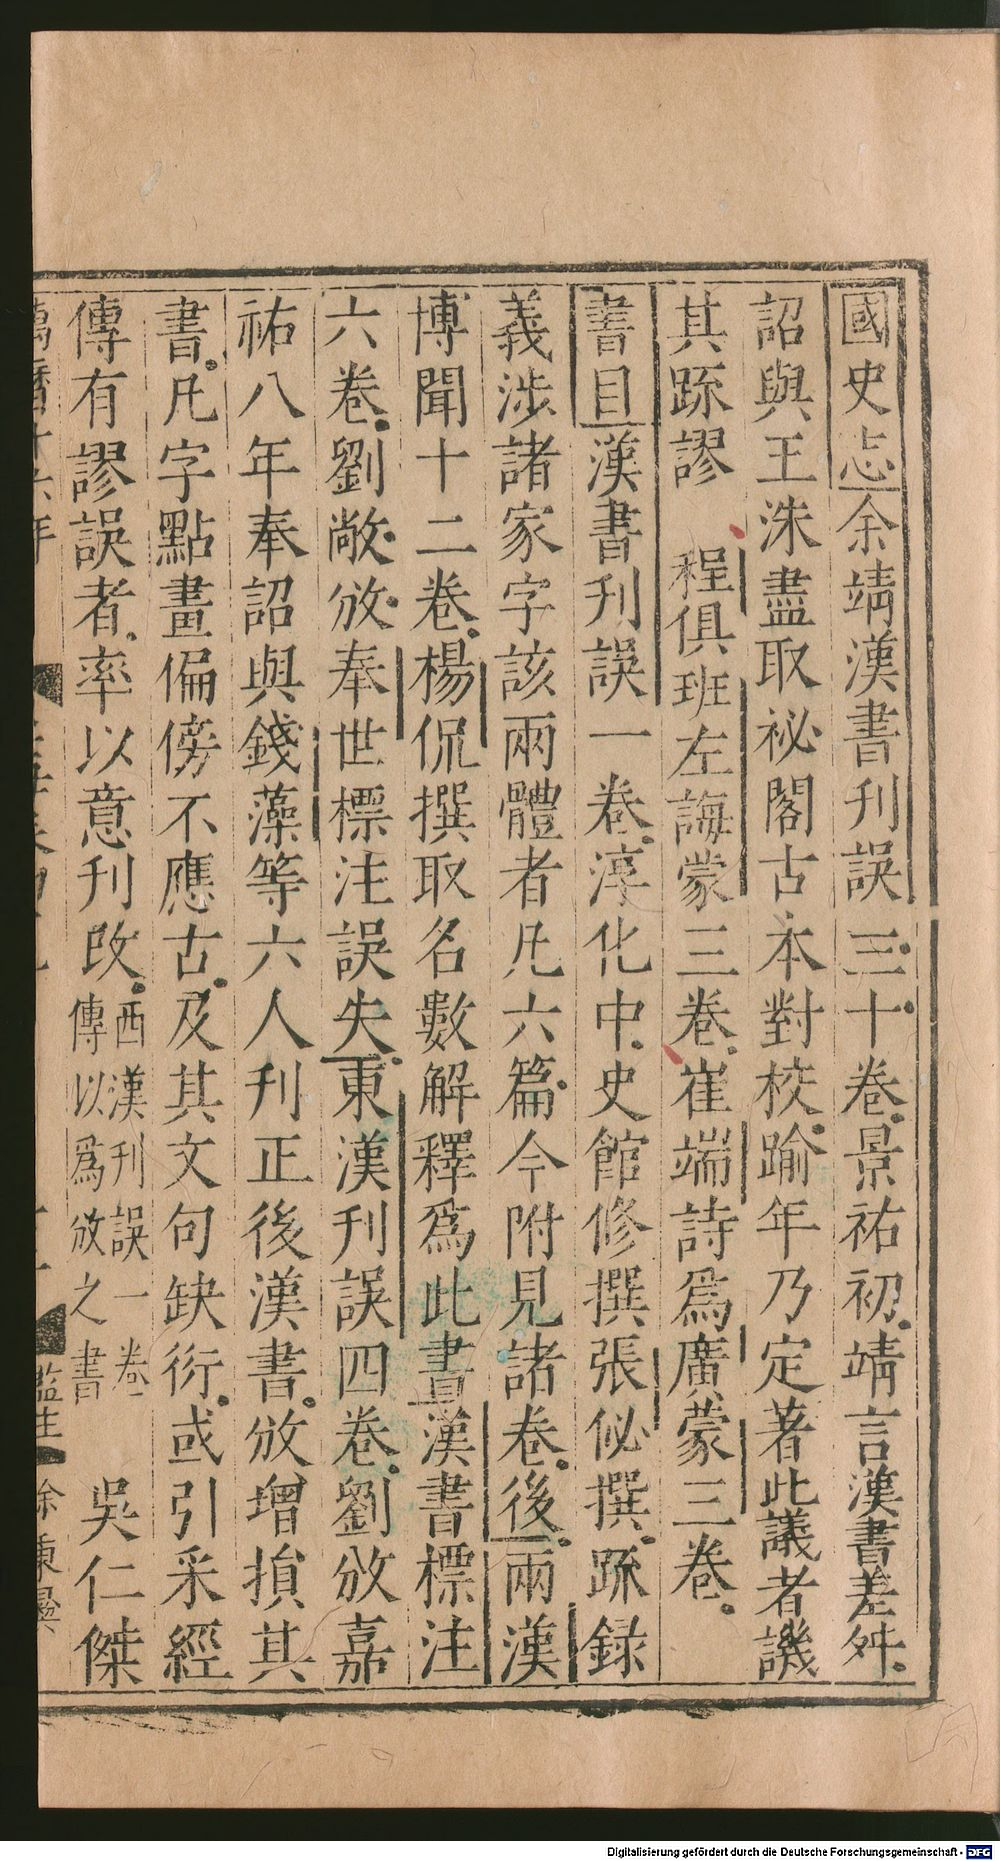 國史志余靖漢書刊誤三十卷景祐初靖言漢書差舛
詔與王洙盡取祕閣古本對校踰年乃定著此議者譏
其䟽謬 程俱班左誨蒙三卷崔端詩爲廣蒙三卷
書目漢書刊誤一卷淳化中史館修撰張佖撰䟽録
義涉諸家字該兩體者凢六篇今附見諸卷後兩漢
博聞十二卷楊侃撰取名數解釋爲此書漢書標注
六卷劉敞攽奉世標注誤失東漢刊誤四卷劉攽嘉
祐八年奉詔與錢藻等六人刊正後漢書攽增損其
書凢字點畫偏傍不應古及其文句缺衍或引采經
傳有謬誤者率以意刊改
西漢刊誤一卷
傳以爲攽之書
吳仁傑
萬曆十六年
監生
Digitalisierung gefördert durch die Deutsche Forschungsgemeinschaft - DFG